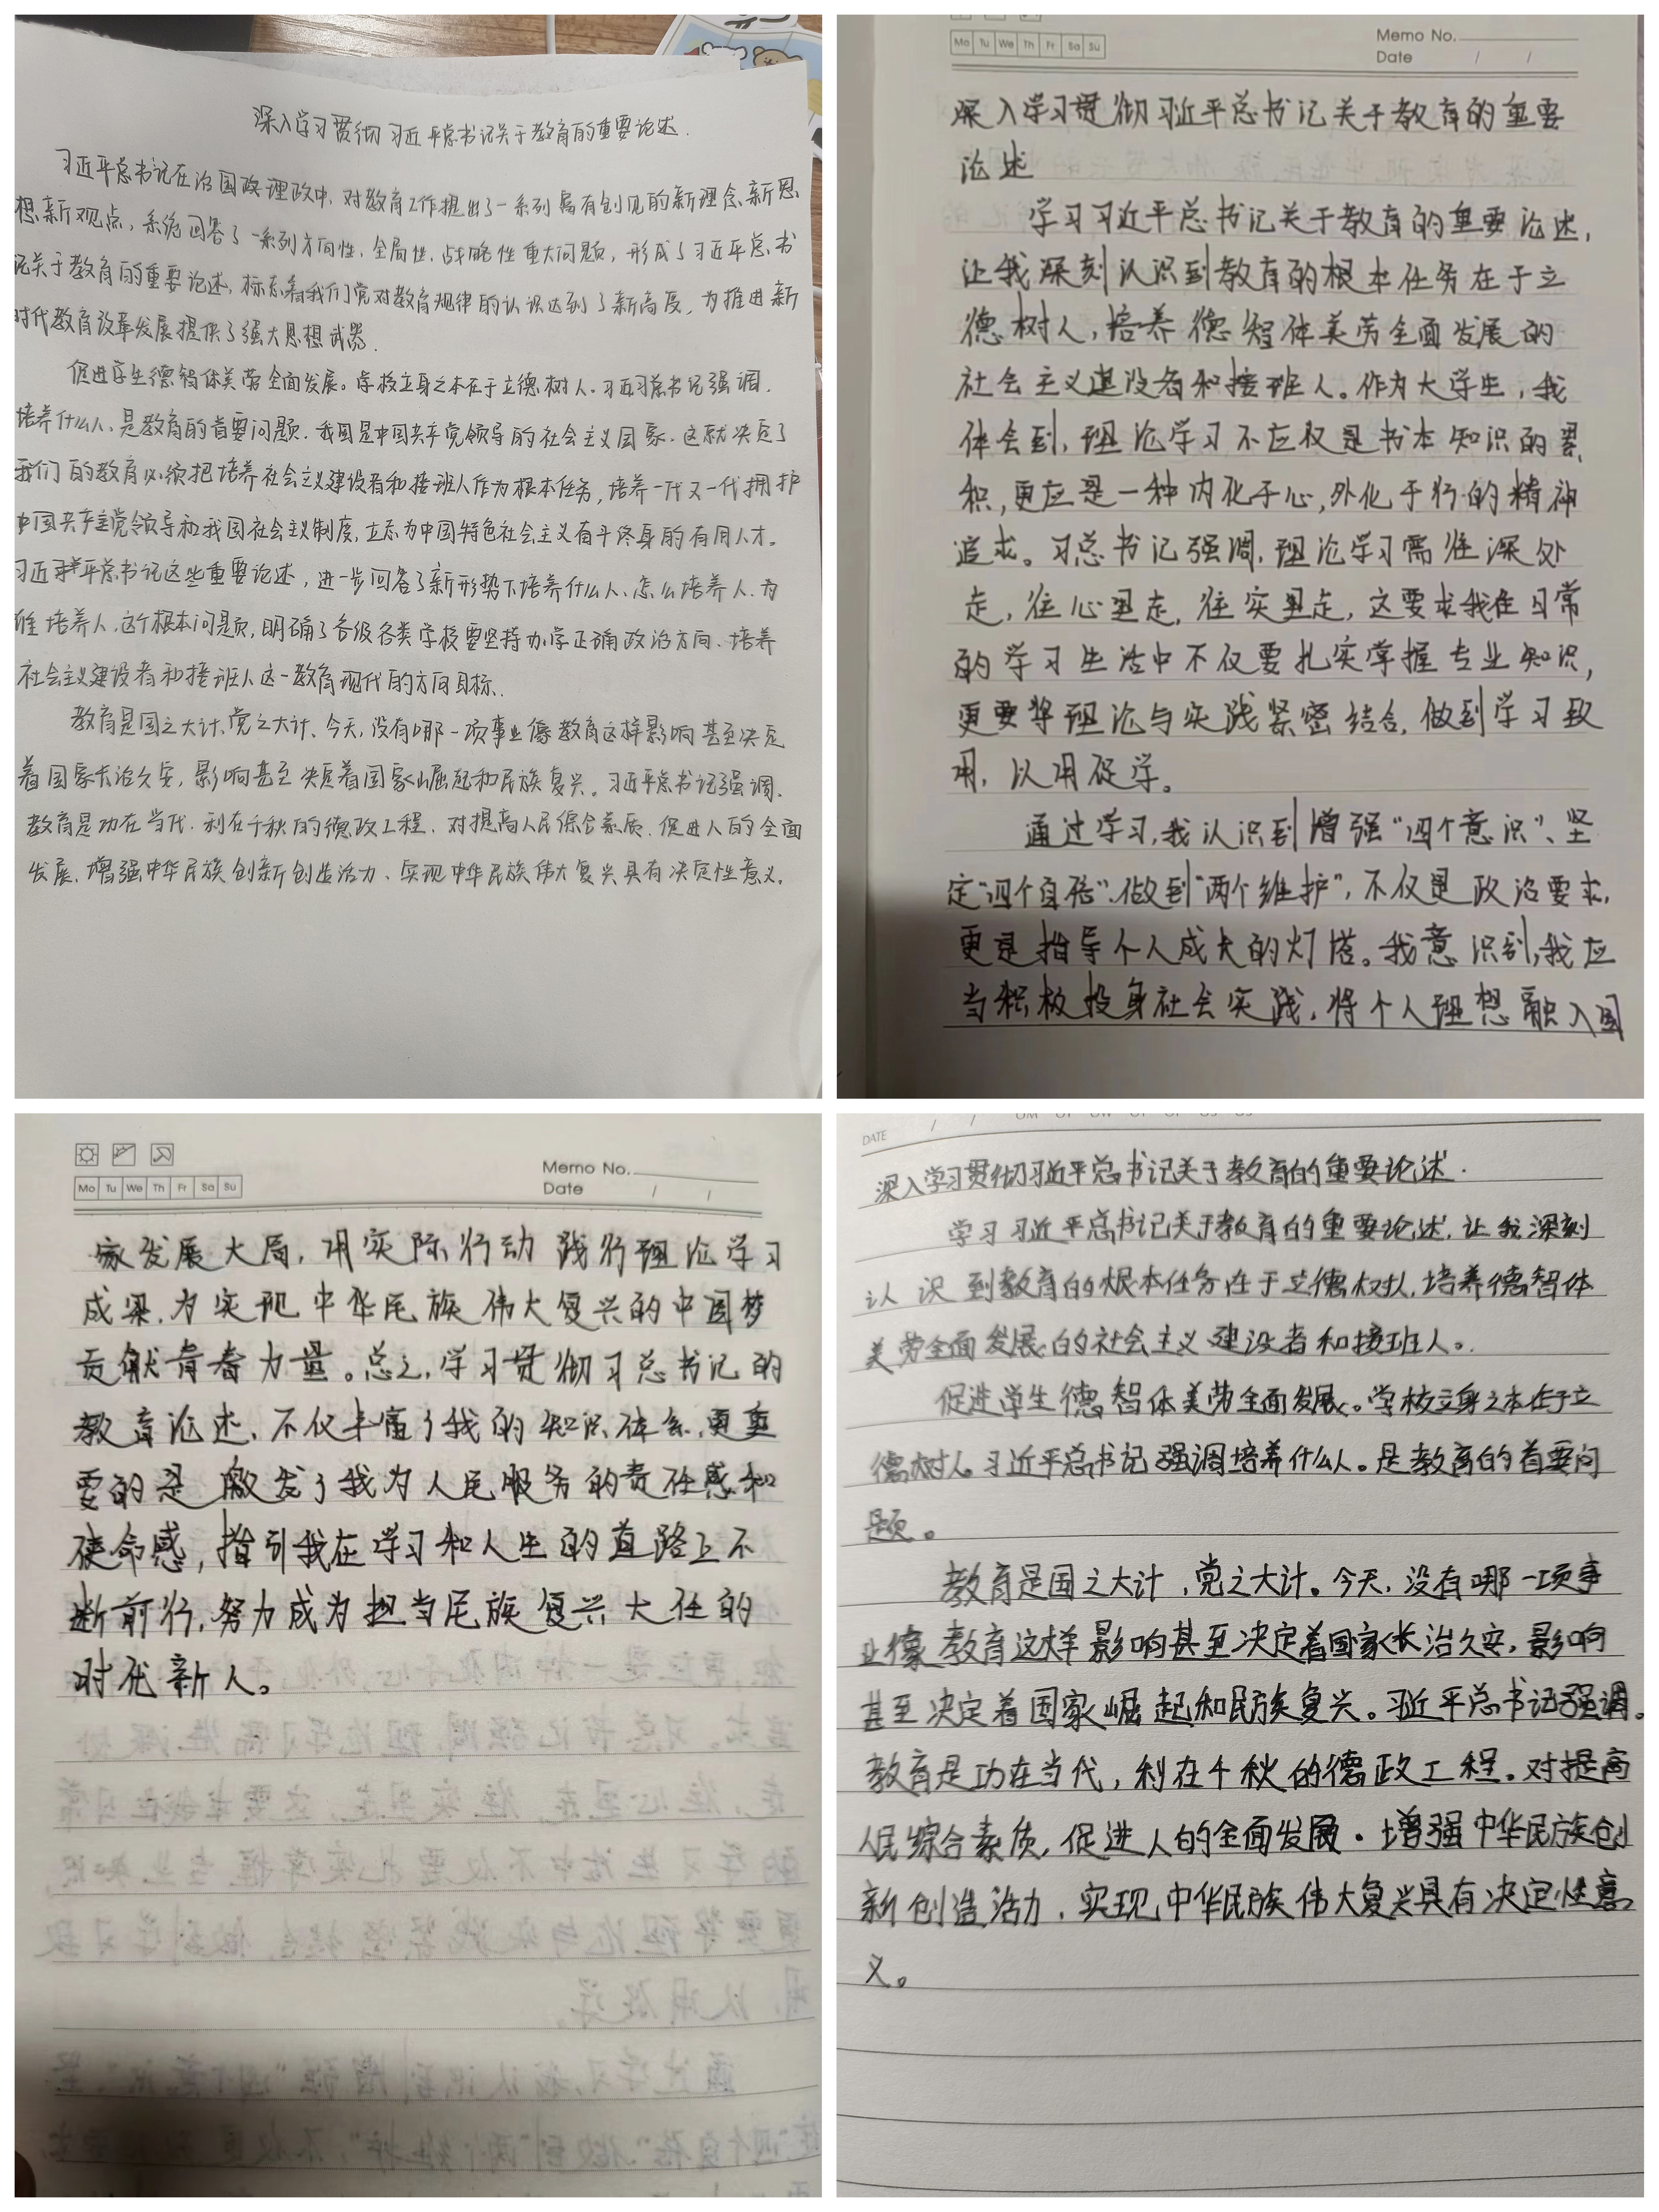 深入学习贯彻习近平总书记关于教育的重要论述.
习近平总书记在治国政理政中，对教育工作提出了一系列富有创见的新理念、新思
想、新观点，系统回答了一系列方向性、全局性、战略性重大问题，形成了习近平总书
记关于教育的重要论述，标志着我们党对教育规律的认识达到了新高度，为推进新
时代教育改革发展提供了强大思想武器.
促进学生德智体美劳全面发展。学校立身之本在于立德树人.习近习总书记强调.
培养什么人、是教育的首要问题.我国是中国共产党领导的社会主义国家.这就决定了
我们的教育必须把培养社会主义建设者和接班人作为根本任务，培养一代又一代拥护
中国共产主党领导和我国社会主义制度，立志为中国特色社会主义有斗终身的有用人才。
习近平总书记这些重要论述，进一步回答了新形势下培养什么人、怎么培养人.为
谁培养人.这个根本问题，明确了各级各类学校要坚持办学正确政治方向、培养
社会主义建设者和接班人这一教育现代的方向目标.
教育是国之大计、党之大计、今天，没有哪一项事业像教育这样影响甚至决定
着国家长治久安，影响甚至决定着国家崛起和民族复兴。习近平总书记强调.
教育是功在当代.利在千秋的德政工程.对提高人民综合素质.促进人的全面
发展.增强中华民族创新创造活力、实现中华民族伟大复兴具有决定性意义.
Mo Tu We Th Fr Sa Su
Memo No.
Date / /
深入学习贯彻习近平总书记关于教育的重要
论述
学习习近平总书记关于教育的重要论述，
让我深刻认识到教育的根本任务在于立
德树人，培养德智体美劳全面发展的
社会主义建设者和接班人。作为大学生，我
体会到，理论学习不应仅是书本知识的累
积，更应是一种内化于心，外化于行的精神
追求。习总书记强调，理论学习需往深处
走，往心里走，往实里走，这要求我在日常
的学习生活中不仅要扎实掌握专业知识，
更要将理论与实践紧密结合，做到学习致
用，以用促学。
通过学习，我认识到增强“四个意识”、坚
定“四个自信”、做到“两个维护”，不仅是政治要求，
更是指导个人成长的灯塔。我意识到，我应
当积极投身社会实践，将个人理想融入国
Mo Tu We Th Fr Sa Su
Memo No.
Date / /
家发展大局，用实际行动践行理论学习
成果，为实现中华民族伟大复兴的中国梦
贡献青春力量。总之，学习贯彻习总书记的
教育论述，不仅丰富了我的知识体系，更重
要的是激发了我为人民服务的责任感和
使命感，指引我在学习和人生的道路上不
断前行，努力成为担当民族复兴大任的
时代新人。
DATE / /
深入学习贯彻习近平总书记关于教育的重要论述.
学习习近平总书记关于教育的重要论述，让我深刻
认识到教育的根本任务在于立德树人，培养德智体
美劳全面发展的社会主义建设者和接班人。
促进学生德智体美劳全面发展。学校立身之本在于立
德树人。习近平总书记强调培养什么人。是教育的首要问
题。
教育是国之大计，党之大计。今天，没有哪一项事
业像教育这样影响甚至决定着国家长治久安，影响
甚至决定着国家崛起和民族复兴。习近平总书记强调。
教育是功在当代，利在千秋的德政工程。对提高
人民综合素质，促进人的全面发展.增强中华民族创
新创造活力.实现中华民族伟大复兴具有决定性意
义。